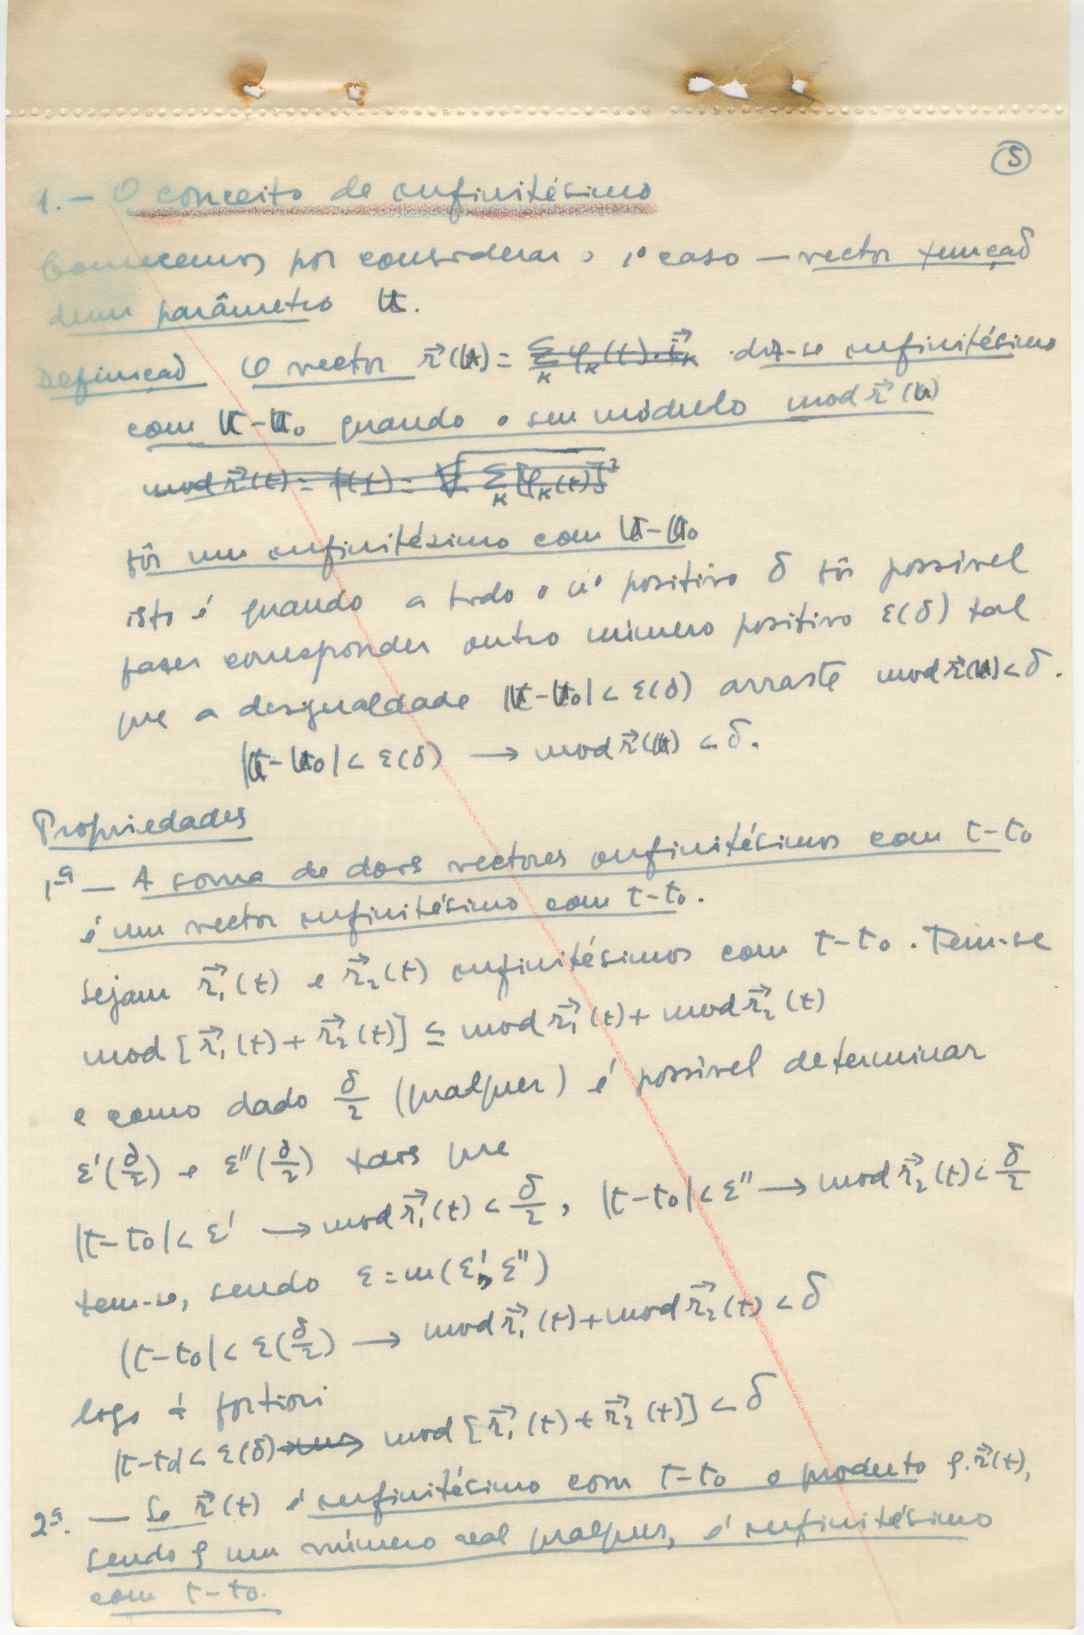 5
1. — O conceito de infinitésimo
Comecemos por considerar o 1º caso — vector função
dum parâmetro u.
Definição O vector r⃗(u) = ∑ₖ φₖ(t)·i⃗ₖ diz-se infinitésimo
com u-u₀ quando o seu módulo mod r⃗(u)
mod r⃗(t) = f(t) = √∑ₖ[φₖ(t)]²
fôr um infinitésimo com u-u₀
isto é quando a todo o nº positivo δ fôr possível
fazer corresponder outro número positivo ε(δ) tal
que a desigualdade |u-u₀| < ε(δ) arraste mod r⃗(u) < δ.
|u-u₀| < ε(δ) → mod r⃗(u) < δ.
Propriedades
1ª — A soma de dois vectores infinitésimos com t-t₀
é um vector infinitésimo com t-t₀.
Sejam r⃗₁(t) e r⃗₂(t) infinitésimos com t-t₀. Tem-se
mod [r⃗₁(t) + r⃗₂(t)] ≤ mod r⃗₁(t) + mod r⃗₂(t)
e como dado δ/2 (qualquer) é possível determinar
ε'(δ/2) e ε''(δ/2) tais que
|t-t₀| < ε' → mod r⃗₁(t) < δ/2, |t-t₀| < ε'' → mod r⃗₂(t) < δ/2
tem-se, sendo ε = m(ε', ε'')
|t-t₀| < ε(δ/2) → mod r⃗₁(t) + mod r⃗₂(t) < δ
logo à fortiori
|t-t₀| < ε(δ) → mod [r⃗₁(t) + r⃗₂(t)] < δ
2ª. — Se r⃗(t) é infinitésimo com t-t₀ o produto ρ.r⃗(t),
sendo ρ um número real qualquer, é infinitésimo
com t-t₀.